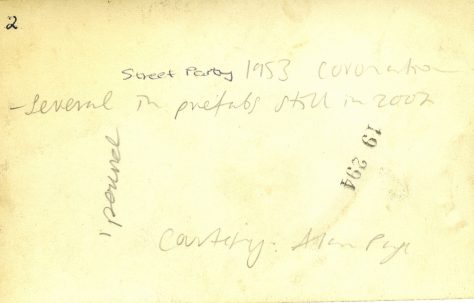 2
Street Party 1953 Coronation
- Several in prefabs still in 2002
1 pound
19 294
Courtesy: Alan Page